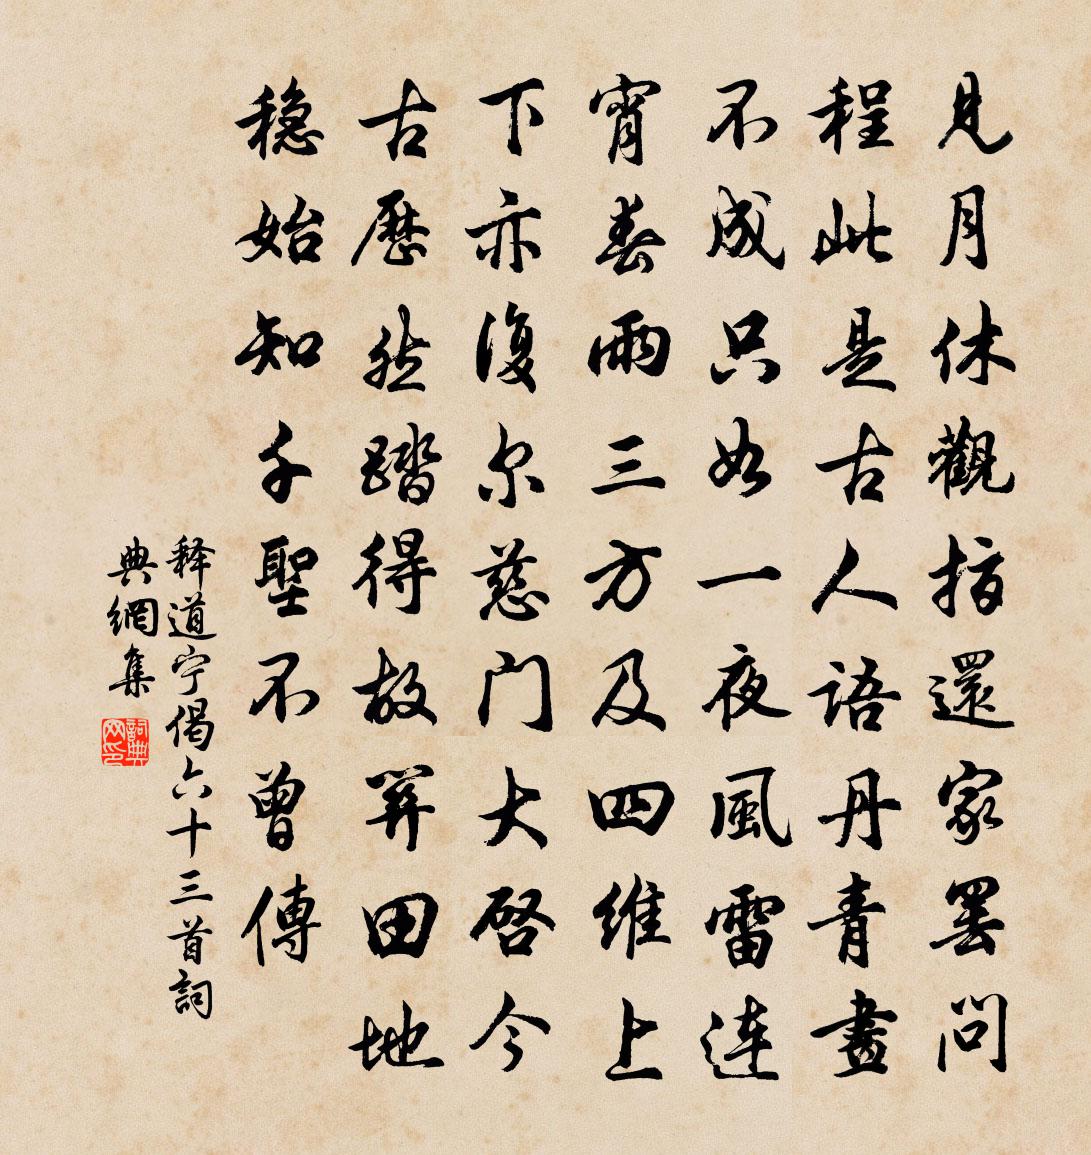 見月休觀指還家罢問
程此是古人語丹青畫
不成只如一夜風雷连
宵春雨三方及四维上
下亦復尔慈门大啓今
古歷然踏得故關田地
稳始知千聖不曾傳
释道宁偈六十三首詞
典網集
詞典网印